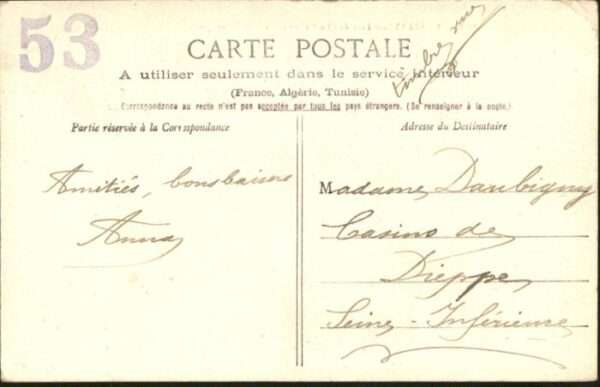 53
timbre vue
CARTE POSTALE
A utiliser seulement dans le service intérieur
(France, Algérie, Tunisie)
Correspondance au recto n'est pas acceptée par tous les pays étrangers. (Se renseigner à la poste)
Partie réservée à la Correspondance
Adresse du Destinataire
Amitiés, bons baisers
Anna
Madame Daubigny
Casino de
Dieppe
Seine-Inférieure